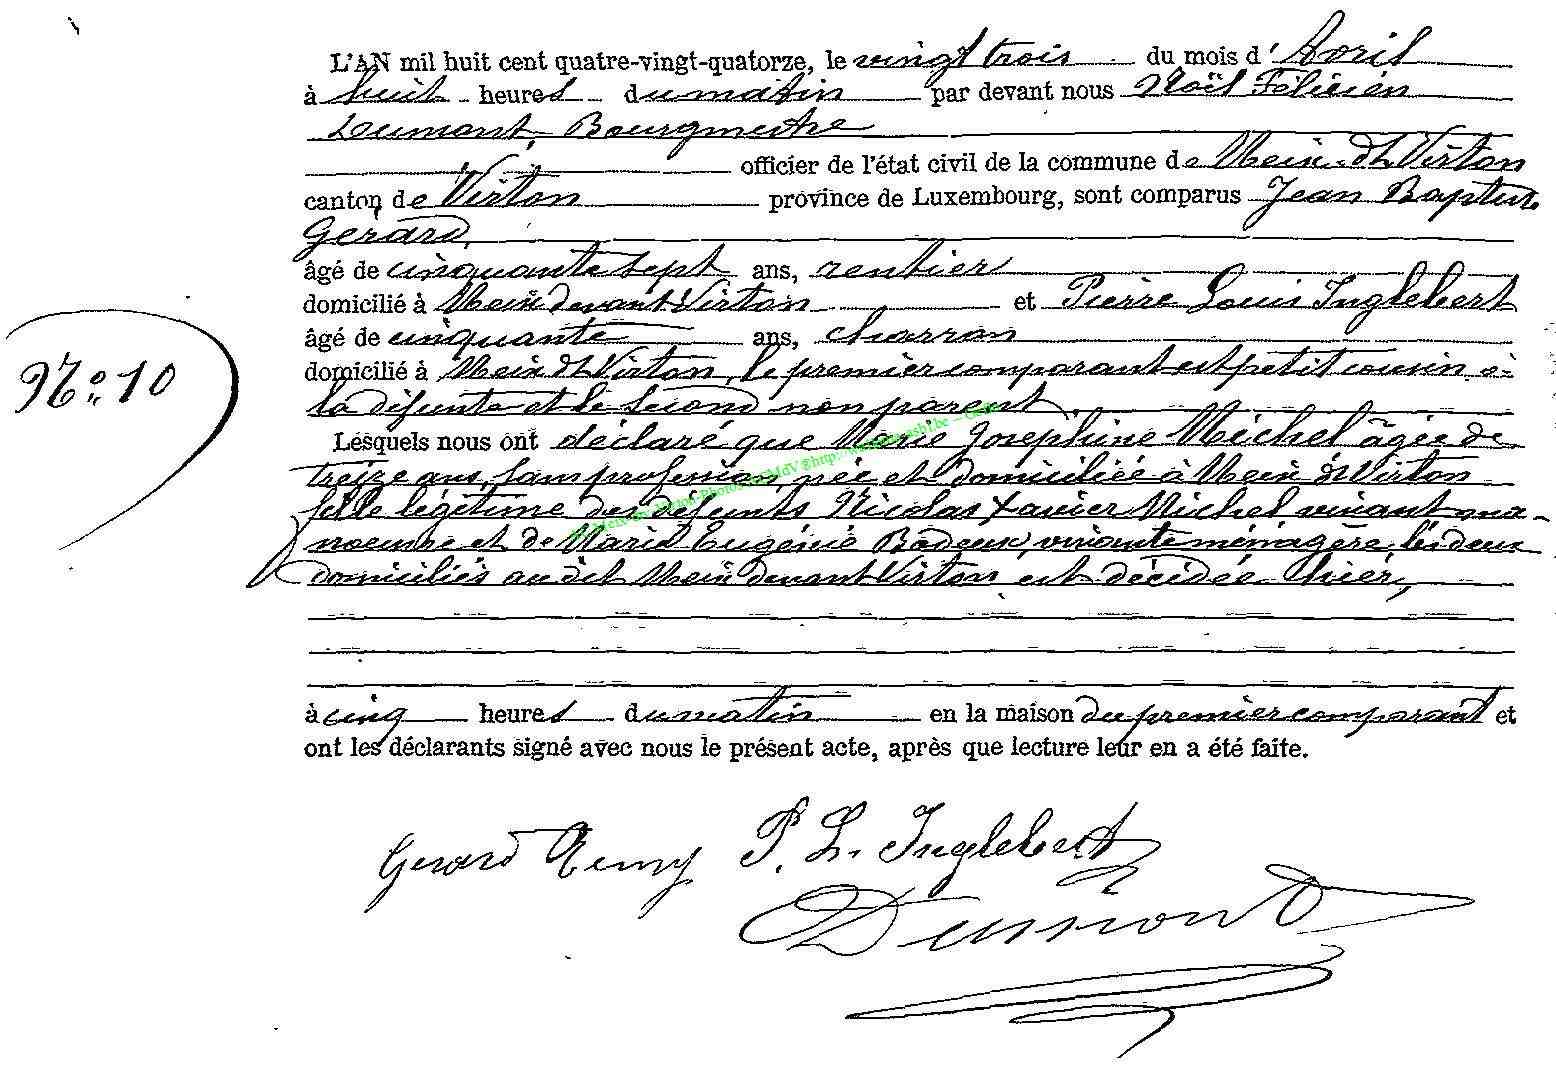 L'AN mil huit cent quatre-vingt-quatorze, le vingt trois du mois d' Avril
à huit heures du matin par devant nous Noël Félicien
Dumont, Bourgmestre
officier de l'état civil de la commune de Meix-dt Virton
canton de Virton province de Luxembourg, sont comparus Jean Baptiste
Gérard,
âgé de cinquante sept ans, rentier
domicilié à Meix devant Virton et Pierre Louis Inglebert
âgé de cinquante ans, charron
domicilié à Meix dt Virton, le premier comparant est petit cousin à
N:o 10
la défunte et le second non parent.
Lesquels nous ont déclaré que Marie Joséphine Michel âgée de
treize ans, sans profession, née et domiciliée à Meix dt Virton
fille légitime des défunts Nicolas Xavier Michel vivant ma-
noeuvre et de Marie Eugénie Badoux, vivante ménagère, les deux
domiciliés au dit Meix devant Virton est décédée hier,
à cinq heures du matin en la maison du premier comparant et
ont les déclarants signé avec nous le présent acte, après que lecture leur en a été faite.
Gerard Remy P. L. Inglebert
Dumont